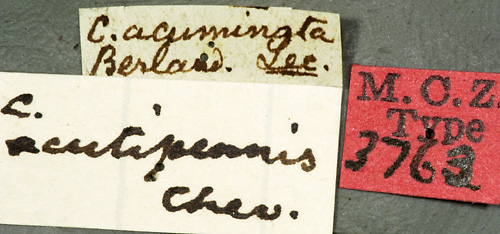 C. acuminata
Berland. Lec.
C.
acutipennis
Chev.
M.C.Z.
Type
3763